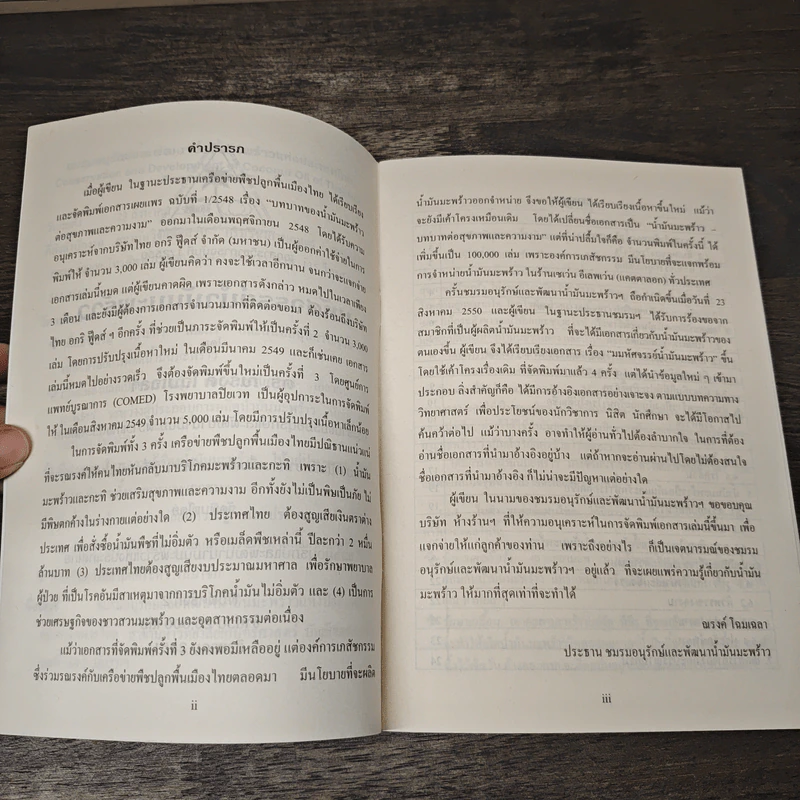 คำปรารภ
เมื่อผู้เขียน ในฐานะประธานเครือข่ายพืชปลูกพื้นเมืองไทย ได้เรียบเรียง
และจัดพิมพ์เอกสารเผยแพร่ ฉบับที่ 1/2548 เรื่อง "บทบาทของน้ำมันมะพร้าว
ต่อสุขภาพและความงาม" ออกมาในเดือนพฤศจิกายน 2548 โดยได้รับความ
อนุเคราะห์จากบริษัทไทย อกริ ฟู๊ดส์ จำกัด (มหาชน) เป็นผู้ออกค่าใช้จ่ายในการ
พิมพ์ให้ จำนวน 3,000 เล่ม ผู้เขียนคิดว่า คงจะใช้เวลาอีกนาน จนกว่าจะแจกจ่าย
เอกสารเล่มนี้หมด แต่ผู้เขียนคาดผิด เพราะเอกสารดังกล่าว หมดไปในเวลาเพียง
3 เดือน และยังมีผู้ต้องการเอกสารจำนวนมากที่ติดต่อขอมา ต้องร้อนถึงบริษัท
ไทย อกริ ฟู๊ดส์ ฯ อีกครั้ง ที่ช่วยเป็นภาระจัดพิมพ์ให้เป็นครั้งที่ 2 จำนวน 3,000
เล่ม โดยการปรับปรุงเนื้อหาใหม่ ในเดือนมีนาคม 2549 และก็เช่นเคย เอกสาร
เล่มนี้หมดไปอย่างรวดเร็ว จึงต้องจัดพิมพ์ขึ้นเป็นครั้งที่ 3 โดยศูนย์การ
แพทย์บูรณาการ (COMED) โรงพยาบาลปิยเวท เป็นผู้อุปการะในการจัดพิมพ์
ให้ ในเดือนสิงหาคม 2549 จำนวน 5,000 เล่ม โดยมีการปรับปรุงเนื้อหาเล็กน้อย
ในการจัดพิมพ์ทั้ง 3 ครั้ง เครือข่ายพืชปลูกพื้นเมืองไทยมีปณิธานแน่วแน่
ที่จะรณรงค์ให้คนไทยหันกลับมาบริโภคมะพร้าวและกะทิ เพราะ (1) น้ำมัน
มะพร้าวและกะทิ ช่วยเสริมสุขภาพและความงาม อีกทั้งยังไม่เป็นพิษเป็นภัย ไม่
มีพิษตกค้างในร่างกายแต่อย่างใด (2) ประเทศไทย ต้องสูญเสียเงินตราต่าง
ประเทศ เพื่อสั่งซื้อน้ำมันพืชที่ไม่อิ่มตัว หรือเมล็ดพืชเหล่านี้ ปีละกว่า 2 หมื่น
ล้านบาท (3) ประเทศไทยต้องสูญเสียงบประมาณมหาศาล เพื่อรักษาพยาบาล
ผู้ป่วย ที่เป็นโรคอันมีสาเหตุมาจากการบริโภคน้ำมันไม่อิ่มตัว และ (4) เป็นการ
ช่วยเศรษฐกิจของชาวสวนมะพร้าว และอุตสาหกรรมต่อเนื่อง
แม้ว่าเอกสารที่จัดพิมพ์ครั้งที่ 3 ยังคงพอมีเหลืออยู่ แต่องค์การเภสัชกรรม
ซึ่งร่วมรณรงค์กับเครือข่ายพืชปลูกพื้นเมืองไทยตลอดมา มีนโยบายที่จะผลิต
ii
น้ำมันมะพร้าวออกจำหน่าย จึงขอให้ผู้เขียน ได้เรียบเรียงเนื้อหาขึ้นใหม่ แม้ว่า
จะยังมีเค้าโครงเหมือนเดิม โดยได้เปลี่ยนชื่อเอกสารเป็น "น้ำมันมะพร้าว –
บทบาทต่อสุขภาพและความงาม" แต่ที่น่าปลื้มใจก็คือ จำนวนพิมพ์ในครั้งนี้ ได้
เพิ่มขึ้นเป็น 100,000 เล่ม เพราะองค์การเภสัชกรรม มีนโยบายที่จะแจกพร้อม
การจำหน่ายน้ำมันมะพร้าว ในร้านเซเว่น อีเลฟเว่น (แคตตาลอก) ทั่วประเทศ
ครั้นชมรมอนุรักษ์และพัฒนาน้ำมันมะพร้าวฯ ถือกำเนิดขึ้นเมื่อวันที่ 23
สิงหาคม 2550 และผู้เขียน ในฐานะประธานชมรมฯ ได้รับการร้องขอจาก
สมาชิกที่เป็นผู้ผลิตน้ำมันมะพร้าว ที่จะได้มีเอกสารเกี่ยวกับน้ำมันมะพร้าวของ
ตนเองขึ้น ผู้เขียน จึงได้เรียบเรียงเอกสาร เรื่อง "มหัศจรรย์น้ำมันมะพร้าว" ขึ้น
โดยใช้เค้าโครงเรื่องเดิม ที่จัดพิมพ์มาแล้ว 4 ครั้ง แต่ได้นำข้อมูลใหม่ ๆ เข้ามา
ประกอบ สิ่งสำคัญก็คือ ได้มีการอ้างอิงเอกสารอย่างเจาะจง ตามแบบบทความทาง
วิทยาศาสตร์ เพื่อประโยชน์ของนักวิชาการ นิสิต นักศึกษา จะได้มีโอกาสไป
ค้นคว้าต่อไป แม้ว่าบางครั้ง อาจทำให้ผู้อ่านทั่วไปต้องลำบากใจ ในการที่ต้อง
อ่านชื่อเอกสารที่นำมาอ้างอิงอยู่บ้าง แต่ถ้าหากจะอ่านผ่านไปโดยไม่ต้องสนใจ
ชื่อเอกสารที่นำมาอ้างอิง ก็ไม่น่าจะมีปัญหาแต่อย่างใด
ผู้เขียน ในนามของชมรมอนุรักษ์และพัฒนาน้ำมันมะพร้าวฯ ขอขอบคุณ
บริษัท ห้างร้านฯ ที่ให้ความอนุเคราะห์ในการจัดพิมพ์เอกสารเล่มนี้ขึ้นมา เพื่อ
แจกจ่ายให้แก่ลูกค้าของท่าน เพราะถึงอย่างไร ก็เป็นเจตนารมณ์ของชมรม
อนุรักษ์และพัฒนาน้ำมันมะพร้าวฯ อยู่แล้ว ที่จะเผยแพร่ความรู้เกี่ยวกับน้ำมัน
มะพร้าว ให้มากที่สุดเท่าที่จะทำได้
ณรงค์ โฉมเฉลา
ประธาน ชมรมอนุรักษ์และพัฒนาน้ำมันมะพร้าว
iii